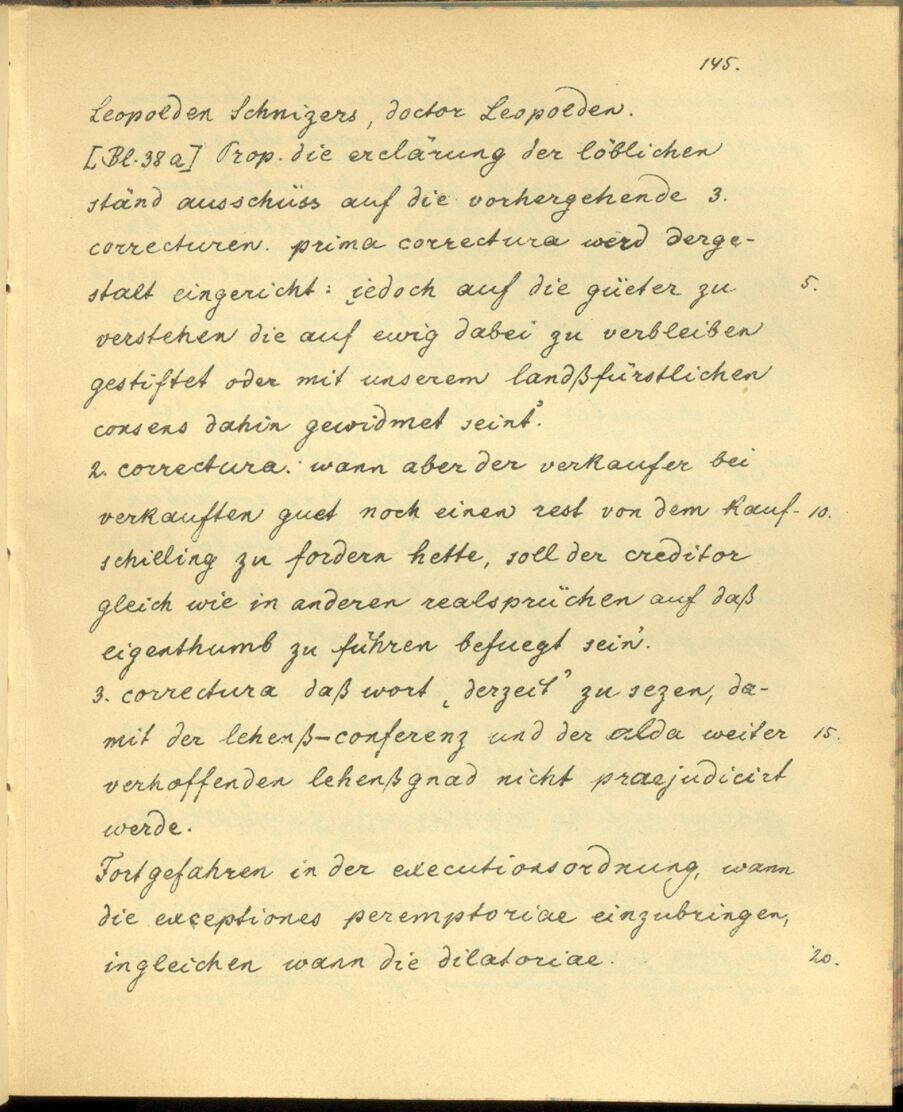 145.
Leopolden Schnizers, doctor Leopolden.
[Bl. 38a] Prop. die erclärung der löblichen
ständ ausschüss auf die vorhergehende 3.
correcturen. prima correctura werd derge-
stalt eingericht: jedoch auf die güeter zu 5.
verstehen die auf ewig dabei zu verbleiben
gestiftet oder mit unserem landßfürstlichen
consens dahin gewidmet seint'.
2. correctura: wann aber der verkaufer bei
verkauften guet noch einen rest von dem kauf- 10.
schilling zu fordern hette, soll der creditor
gleich wie in anderen realsprüchen auf daß
eigenthumb zu führen befuegt sein'.
3. correctura daß wort „derzeit" zu sezen, da-
mit der lehenß-conferenz und der alda weiter 15.
verhoffenden lehenßgnad nicht praejudicirt
werde.
Fortgefahren in der executionsordnung, wann
die exceptiones peremptoriae einzubringen,
ingleichen wann die dilatoriae. 20.